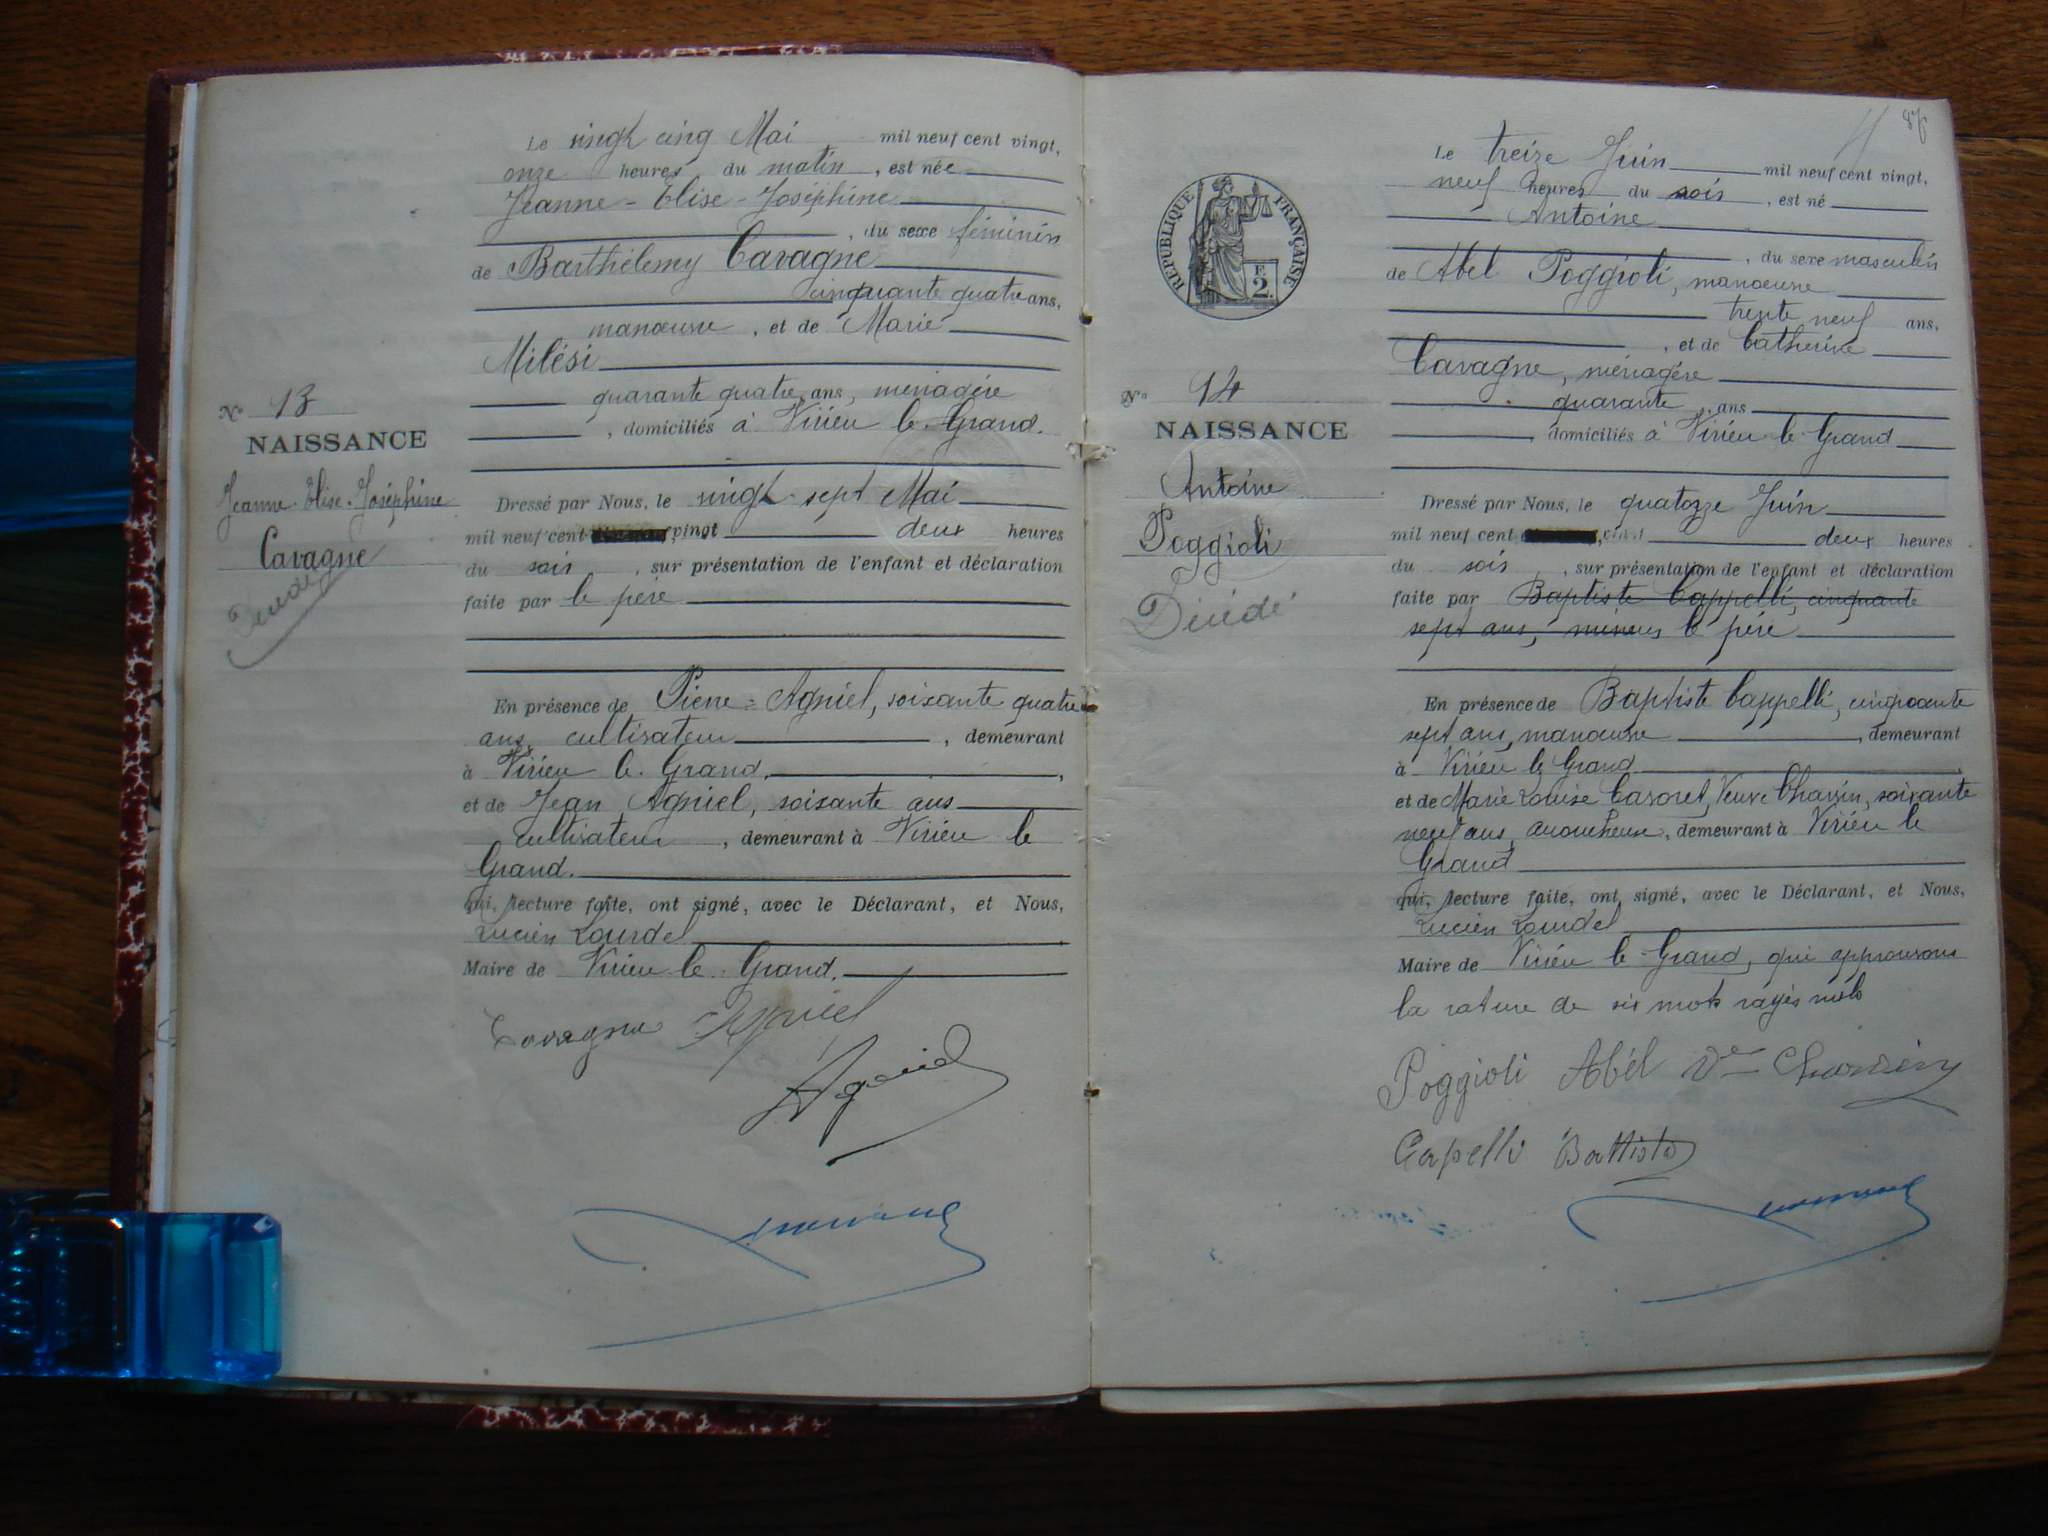 Le vingt cinq Mai mil neuf cent vingt,
onze heures du matin, est née
Jeanne-Elise-Joséphine
, du sexe féminin
de Barthélemy Cavagne
cinquante quatre ans,
manœuvre, et de Marie
Milési
quarante quatre ans, ménagère
, domiciliés à Virieu le Grand.
Nº 13
NAISSANCE
Jeanne-Elise-Joséphine
Cavagne
Dressé par Nous, le vingt-sept Mai
mil neuf cent vingt deux heures
du soir, sur présentation de l'enfant et déclaration
faite par le père
En présence de Pierre Agniel, soixante quatre
ans, cultivateur, demeurant
à Virieu le Grand,
et de Jean Agniel, soixante ans
cultivateur, demeurant à Virieu le
Grand.
qui, lecture faite, ont signé, avec le Déclarant, et Nous,
Lucien Lourdel
Maire de Virieu le Grand.
Cavagna Agniel
Agniel
87
Le treize Juin mil neuf cent vingt,
neuf heures du soir, est né
Antoine
, du sexe masculin
de Abel Poggioli, manœuvre
trente neuf ans,
, et de Catherine
Cavagne, ménagère
quarante, ans
domiciliés à Virieu-le-Grand
RÉPUBLIQUE FRANÇAISE
F.
2.
Nº 14
NAISSANCE
Antoine
Poggioli
Décédé
Dressé par Nous, le quatorze Juin
mil neuf cent vingt deux heures
du soir, sur présentation de l'enfant et déclaration
faite par Baptiste Cappelli, cinquante
sept ans, mineur le père
En présence de Baptiste Cappelli, cinquante
sept ans, manœuvre, demeurant
à Virieu le Grand
et de Marie Louise Veuve soixante
neuf ans, accoucheuse, demeurant à Virieu le
Grand
qui, lecture faite, ont signé, avec le Déclarant, et Nous,
Lucien Lourdel
Maire de Virieu le-Grand, qui approuvons
la rature de six mots rayés nuls
Poggioli Abél Vve
Capelli Battista